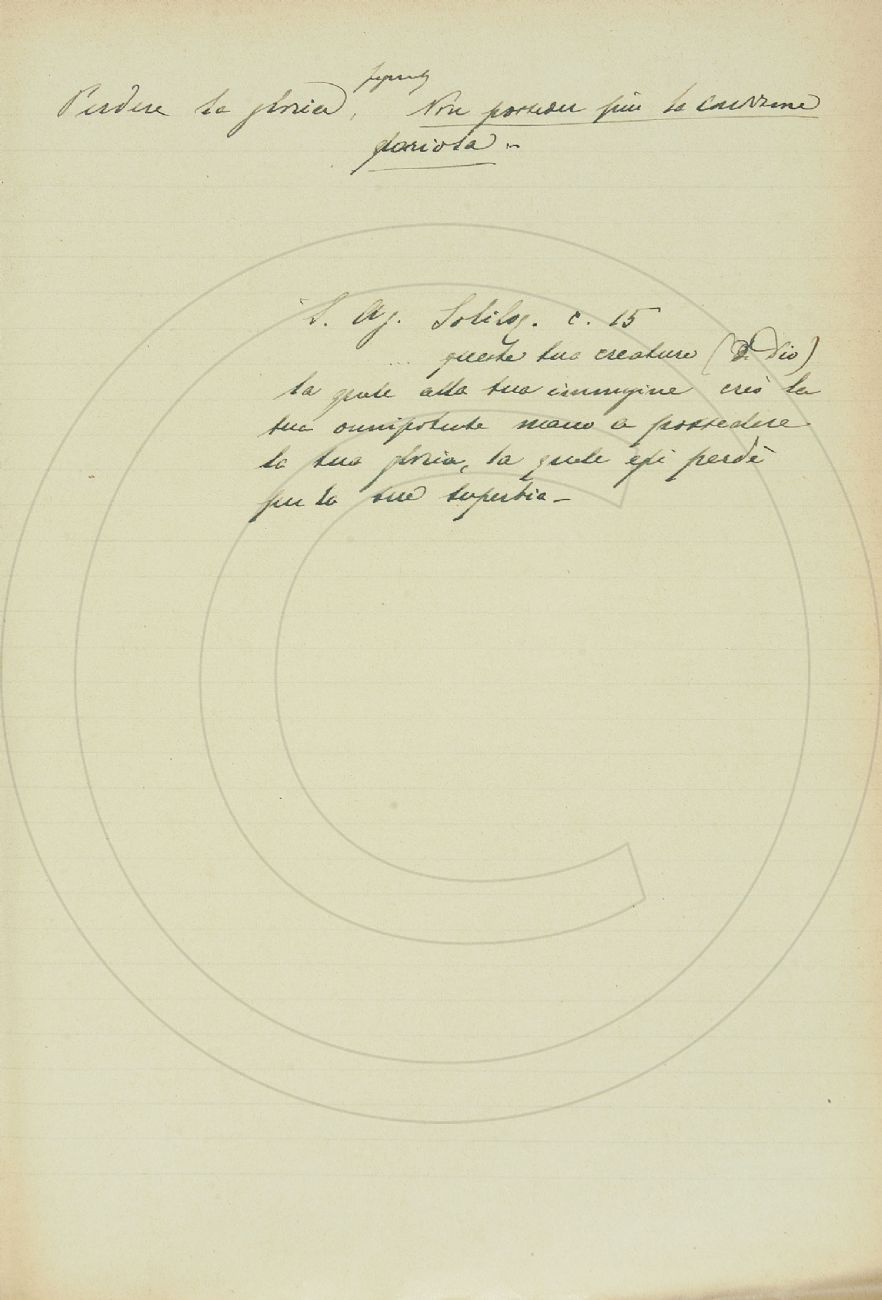 Perdere la gloria, Non posseder più la
gloriosa
S. Ag. Soliloq. c. 15
... questa tua creatura (di Dio)
la quale alla tua immagine creò la
tua onnipotente mano a possedere
la tua gloria, la quale essa perdè
per la sua superbia